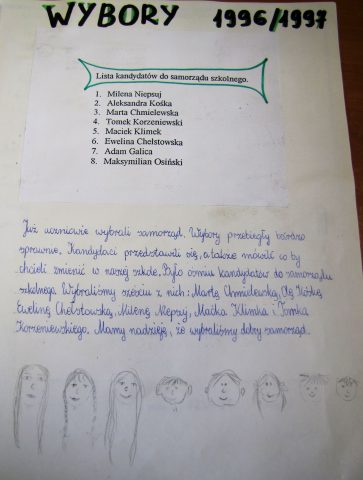 WYBORY 1996/1997
Lista kandydatów do samorządu szkolnego.
1. Milena Niepsuj
2. Aleksandra Kośka
3. Marta Chmielewska
4. Tomek Korzeniewski
5. Maciek Klimek
6. Ewelina Chelstowska
7. Adam Galica
8. Maksymilian Osiński
Już uczniowie wybrali samorząd. Wybory przebiegły bardzo
sprawnie. Kandydaci przedstawili się, a także mówić co by
chcieli zmienić w naszej szkole. Było ośmiu kandydatów do samorządu
szkolnego. Wybraliśmy sześciu z nich: Martę Chmielewską, Olę Kośkę
Ewelinę Chelstowską, Milenę Niepsuj, Maćka Klimka i Tomka
Korzeniewskiego. Mamy nadzieję, że wybraliśmy dobry samorząd.